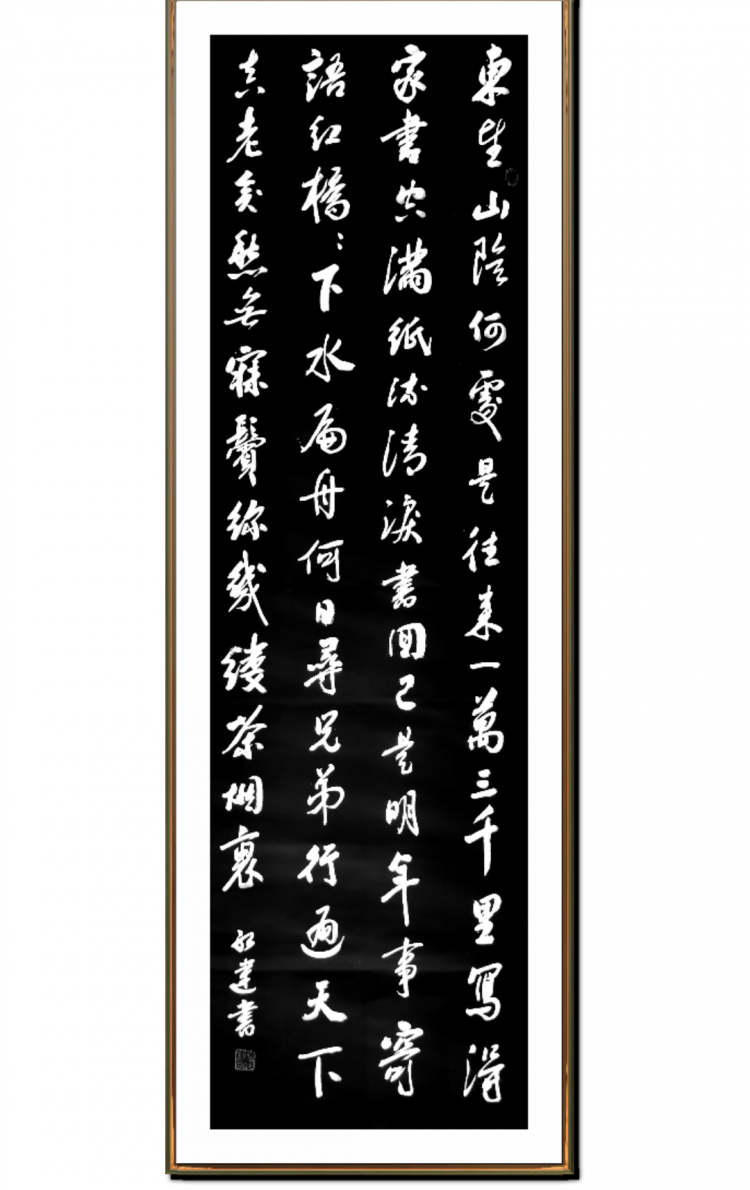 東望山陰何處是往來一萬三千里寫得
家書空滿紙流清淚書囬已是明年事寄
語紅橋〻下水扁舟何日尋兄弟行遍天下
真老矣愁無寐鬢絲幾縷茶烟裏
書